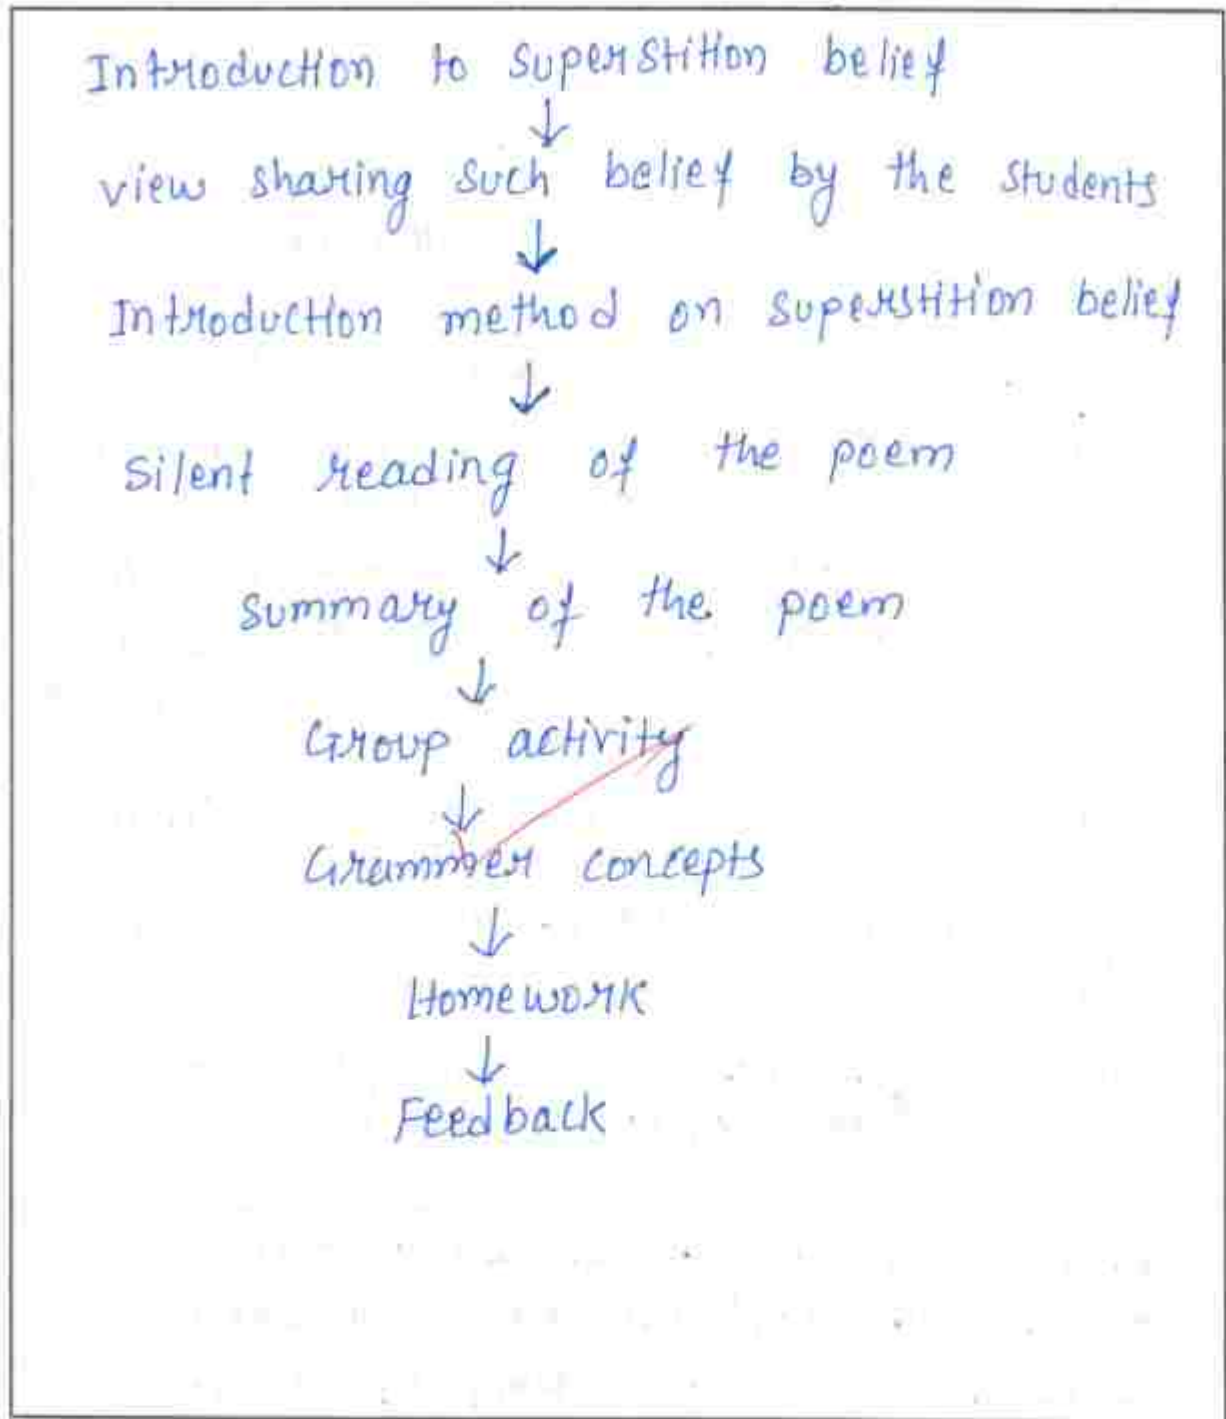 Introduction to superstition belief
↓
view sharing such belief by the students
↓
Introduction method on superstition belief
↓
Silent reading of the poem
↓
Summary of the poem
↓
Group activity
↓
Grammer concepts
↓
Homework
↓
Feedback